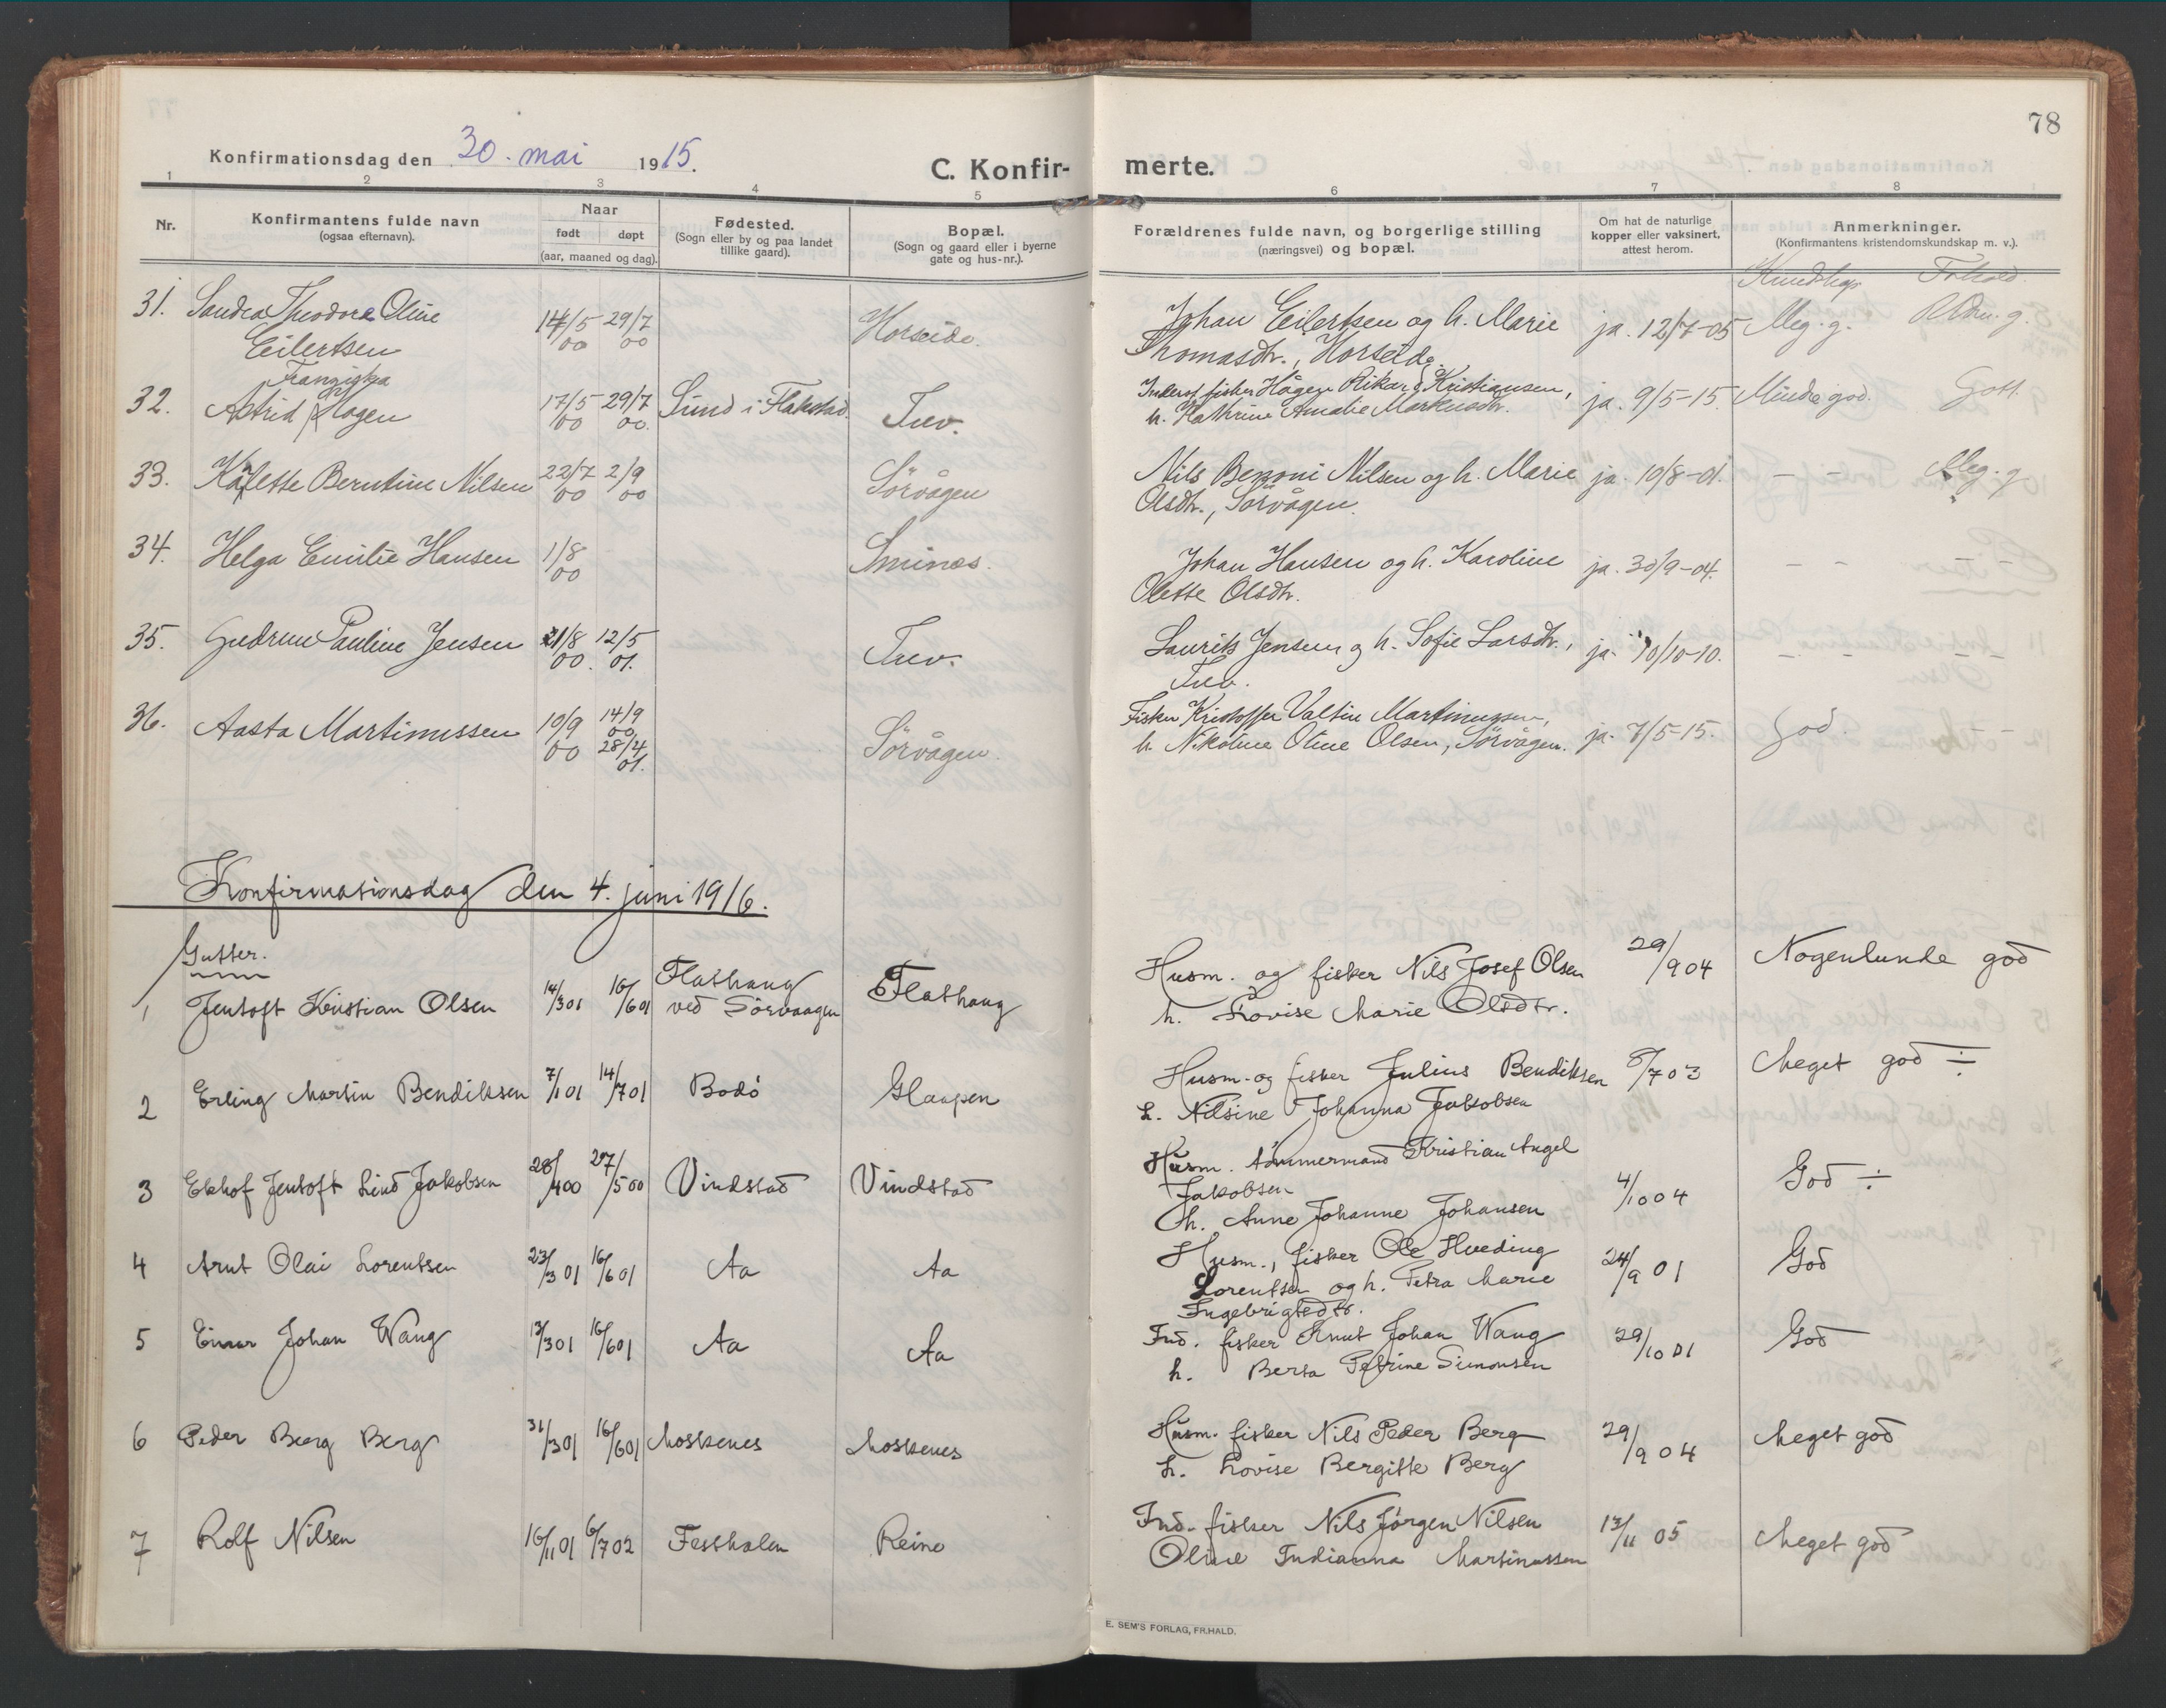 78
Konfirmationsdag den 30. mai 1915.
C. Konfir- merte.
1 2 3 4 5 6 7 8
Nr.
Konfirmantens fulde navn
(ogsaa efternavn).
Naar
født døpt
(aar, maaned og dag).
Fødested.
(Sogn eller by og paa landet
tillike gaard).
Bopæl.
(Sogn og gaard eller i byerne
gate og hus-nr.).
Forældrenes fulde navn, og borgerlige stilling
(næringsvei) og bopæl.
Om hat de naturlige
kopper eller vaksinert,
attest herom.
Anmerkninger.
(Konfirmantens kristendomskundskap m. v.).
Kundskap Forhold
31. Sandra Theodora Oline 14/5 00 29/7 00 Horseide. Johan Eilertsen og h. Marie ja. 12/7-05 Meg. g.
Eilertsen Thomasdtr., Horseide.
Franziska
32. Astrid Hagen 17/5 00 29/7 00. Sund i Flakstad Tuv. Inderst fisker Hågen Rikard Kristiansen, ja. 9/5-15. Mindre god. Godt.
h. Kathrine Amalie Markusdtr.
33. Kålette Berntine Nilsen 22/7 00 2/9 00 Sörvågen Nils Benoni Nilsen og h. Marie ja. 10/8-01. - - Meg. g
Olsdtr., Sörvågen.
34. Helga Emilie Hansen 1/8 00 Smines. Johan Hansen og h. Karoline ja. 30/9-04. - - -
Olette Olsdtr.
35. Gudrun Pauline Jensen 21/8 00. 12/5 01. Tuv. Laurits Jensen og h. Sofie Larsdtr., ja. 10/10-10. - - -
Tuv.
36. Aasta Martinussen 10/9 00 14/9 00 28/4 01. Sörvågen. Fisker Kristoffer Valtin Martinussen, ja. 7/5-15. god. -
h. Nikoline Oline Olsen, Sörvågen.
Konfirmasionsdag den 4. juni 1916.
Gutter.
1 Jentoft Kristian Olsen 14/3 01 16/6 01 Flathaug Flathaug Husm. og fisker Nils Josef Olsen 29/9 04 Nogenlunde god
ved Sörvaagen h. Lovise Marie Olsdtr.
2 Erling Martin Bendiksen 7/1 01 14/7 01 Bodö Glaapen Husm. og fisker Julius Bendiksen 8/7 03 Meget god ÷
h. Nilsine Johanna Jakobsen
3 Ekhof Jentoft Lind Jakobsen 28/4 00 27/5 00 Vindstad Vindstad Husm. tömmermand Kristian Angel
Jakobsen 4/10 04 God ÷
h. Anne Johanne Johansen
4 Arnt Olai Lorentsen 23/3 01 16/6 01 Aa Aa Husm., fisker Ole Hveding 24/9 01 God
Lorentsen og h. Petra Marie
Ingebrigtsdtr.
5 Einar Johan Wang 13/3 01 16/6 01 Aa Aa Ind. fisker Knut Johan Wang 29/10 01 God
h. Berta Petrine Simonsen
6 Peder Berg Berg 31/3 01 16/6 01 Moskenes Moskenes Husm. fisker Nils Peder Berg 29/9 04 Meget god
h. Lovise Bergitte Berg
7 Rolf Nilsen 16/11 01 6/7 02 Festhelen Reine Ind. fisker Nils Jörgen Nilsen 13/11 05 Meget god
Oline Indianna Martinussen
E. SEM'S FORLAG, FR.HALD.